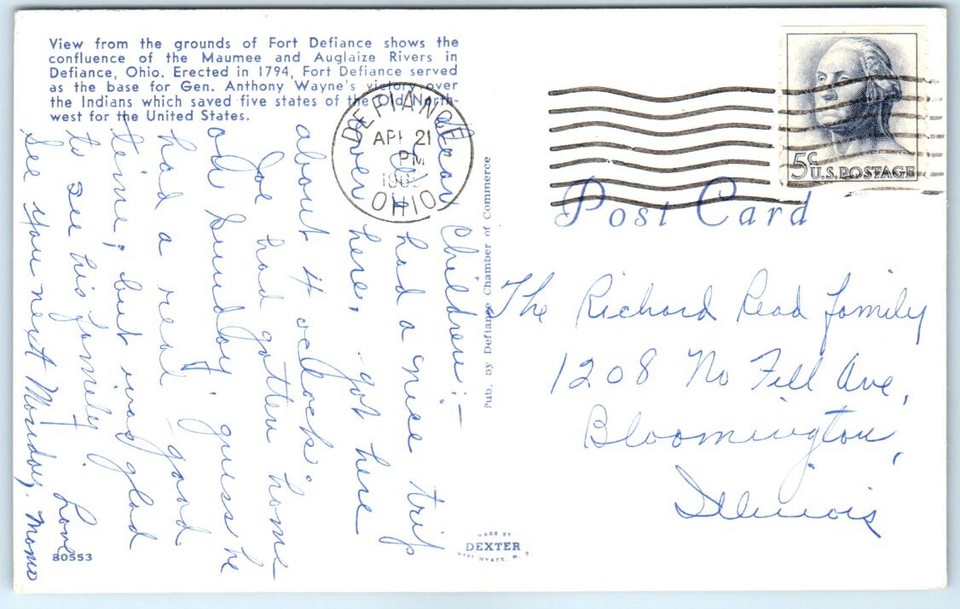 View from the grounds of Fort Defiance shows the
confluence of the Maumee and Auglaize Rivers in
Defiance, Ohio. Erected in 1794, Fort Defiance served
as the base for Gen. Anthony Wayne's victory over
the Indians which saved five states of the Old North-
west for the United States.
Dear Children:-
had a nice trip
over here, got here
about 4 o'clock.
Joe had gotten home
on Sunday. guess he
had a real good
time, but was glad
to see his family.
See you next Monday. Love
Momo
80553
DEFIANCE
APR 21
PM
OHIO
Pub. by Defiance Chamber of Commerce
MADE BY
DEXTER
WEST NYACK, N. Y.
5c
U.S. POSTAGE
Post Card
The Richard Read family
1208 No Fell Ave,
Bloomington,
Illinois